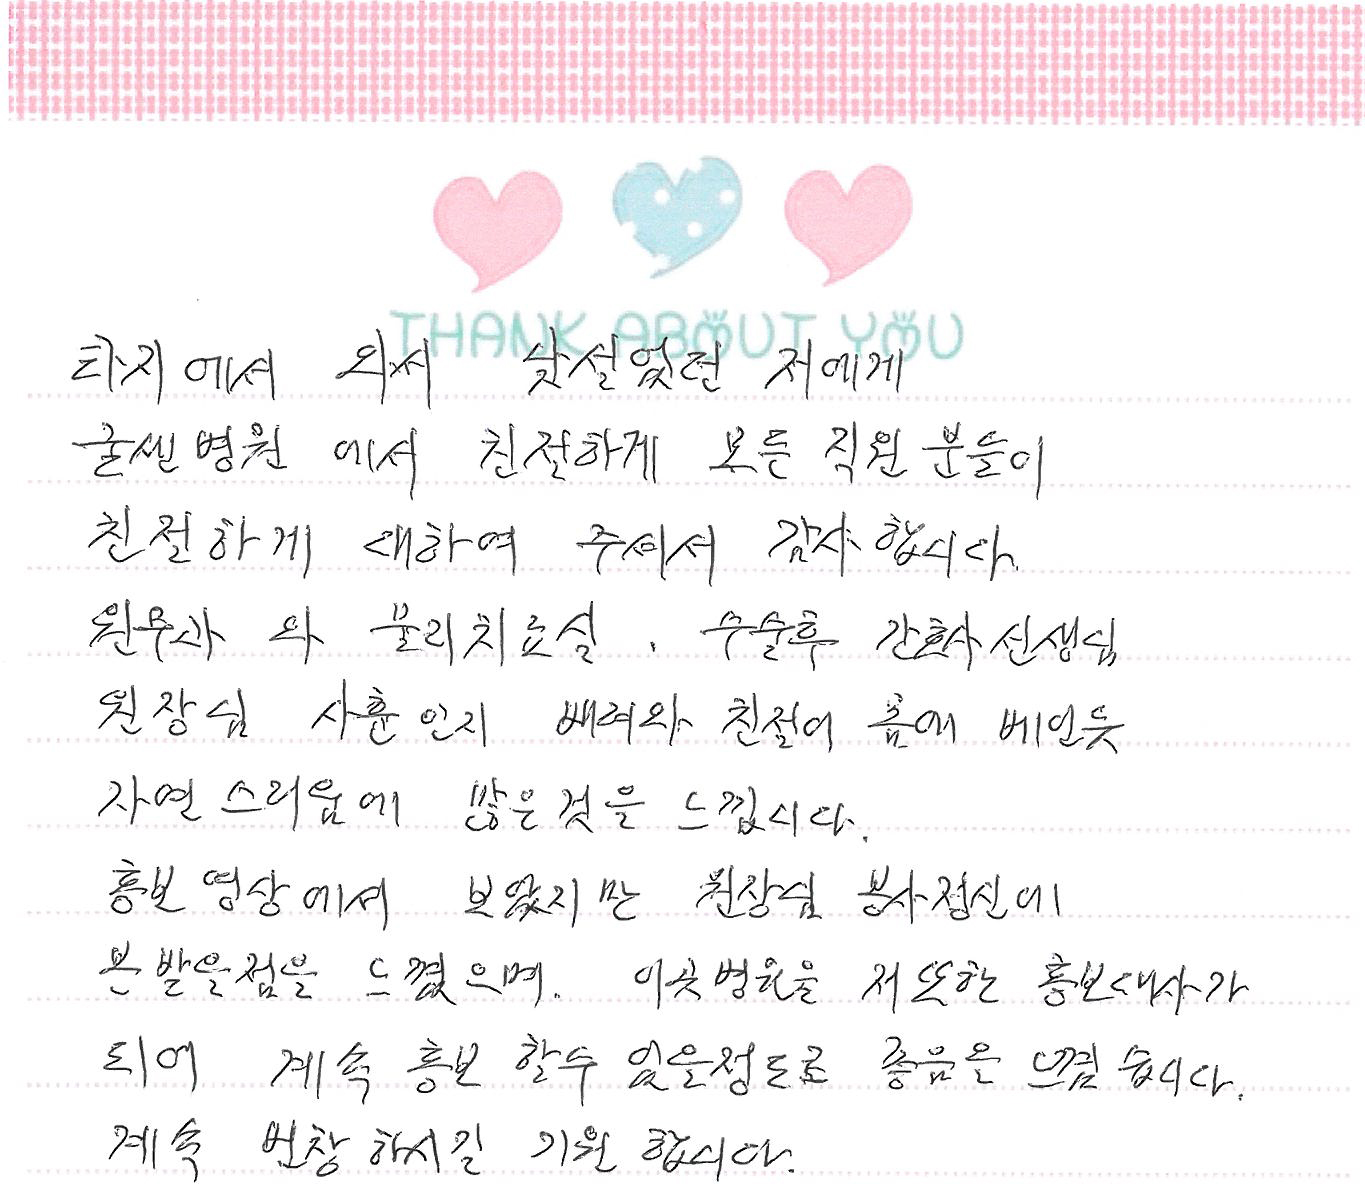 THANK ABOUT YOU
타지에서 와서 낯설었던 저에게
굴센병원 에서 친절하게 모든 직원 분들이
친절하게 대하여 주셔서 감사 합니다.
원무과 와 물리치료실. 수술후 간호사 선생님
원장님 사훈 인지 배려와 친절이 몸에 베인듯
자연 스러움에 많은것을 느낍니다.
홍보 영상에서 보았지만 원장님 봉사정신에
본받을점을 느꼈으며. 이곳병원을 저 또한 홍보대사가
되어 계속 홍보 할수 있을정도로 좋음은 느꼈습니다.
계속 번창 하시길 기원 합니다.